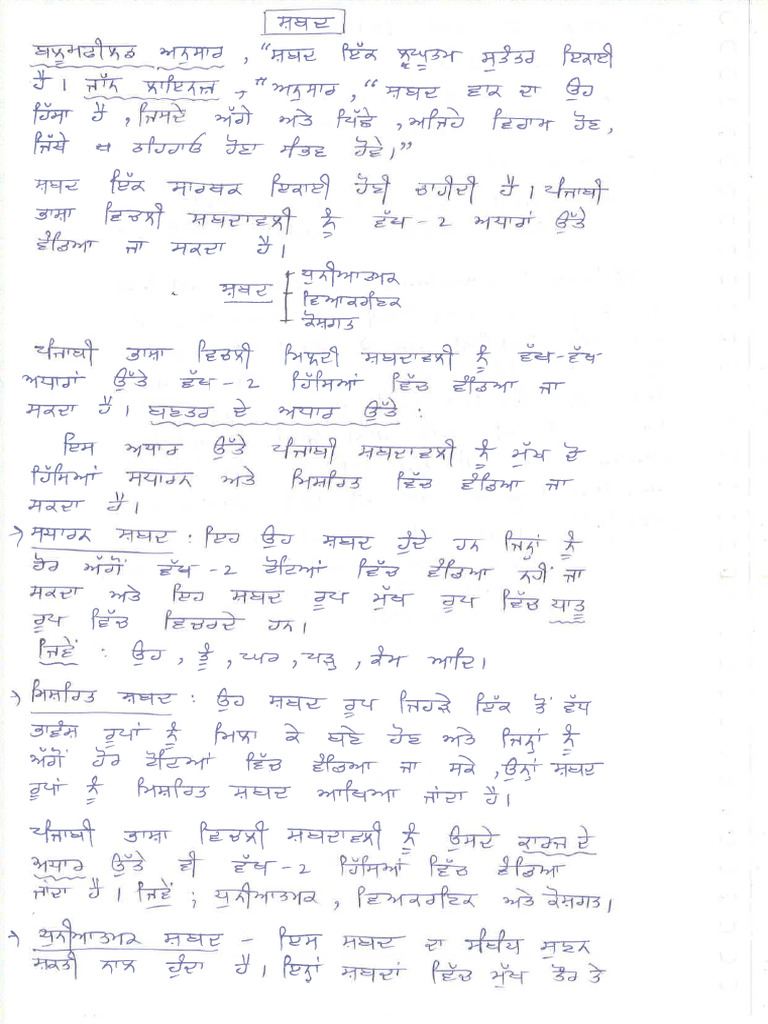 ਸ਼ਬਦ
ਬਲੂਮਫੀਲਡ ਅਨੁਸਾਰ, "ਸ਼ਬਦ ਇੱਕ ਲਘੂਤਮ ਸੁਤੰਤਰ ਇਕਾਈ
ਹੈ। ਜਾੱਨ ਲਾਇਨਜ਼, "ਅਨੁਸਾਰ, "ਸ਼ਬਦ ਵਾਕ ਦਾ ਉਹ
ਹਿੱਸਾ ਹੈ, ਜਿਸਦੇ ਅੱਗੇ ਅਤੇ ਪਿੱਛੇ, ਅਜਿਹੇ ਵਿਰਾਮ ਹੋਣ,
ਜਿੱਥੇ ਠਹਿਰਾਓ ਹੋਣਾ ਸੰਭਵ ਹੋਵੇ।"
ਸ਼ਬਦ ਇੱਕ ਸਾਰਥਕ ਇਕਾਈ ਹੋਣੀ ਚਾਹੀਦੀ ਹੈ। ਪੰਜਾਬੀ
ਭਾਸ਼ਾ ਵਿਚਲੀ ਸ਼ਬਦਾਵਲੀ ਨੂੰ ਵੱਖ-2 ਅਧਾਰਾਂ ਉੱਤੇ
ਵੰਡਿਆ ਜਾ ਸਕਦਾ ਹੈ।
ਧੁਨੀਆਤਮਕ
ਸ਼ਬਦ ਵਿਆਕਰਣਿਕ
ਕੋਸ਼ਗਤ
ਪੰਜਾਬੀ ਭਾਸ਼ਾ ਵਿਚਲੀ ਮਿਲਦੀ ਸ਼ਬਦਾਵਲੀ ਨੂੰ ਵੱਖ-ਵੱਖ
ਅਧਾਰਾਂ ਉੱਤੇ ਵੱਖ-2 ਹਿੱਸਿਆਂ ਵਿੱਚ ਵੰਡਿਆ ਜਾ
ਸਕਦਾ ਹੈ। ਬਣਤਰ ਦੇ ਅਧਾਰ ਉੱਤੇ:
ਇਸ ਅਧਾਰ ਉੱਤੇ ਪੰਜਾਬੀ ਸ਼ਬਦਾਵਲੀ ਨੂੰ ਮੁੱਖ ਦੋ
ਹਿੱਸਿਆਂ ਸਧਾਰਨ ਅਤੇ ਮਿਸ਼ਰਿਤ ਵਿੱਚ ਵੰਡਿਆ ਜਾ
ਸਕਦਾ ਹੈ।
→ ਸਧਾਰਨ ਸ਼ਬਦ: ਇਹ ਉਹ ਸ਼ਬਦ ਹੁੰਦੇ ਹਨ ਜਿਨ੍ਹਾਂ ਨੂੰ
ਹੋਰ ਅੱਗੋਂ ਵੱਖ-2 ਟੋਟਿਆਂ ਵਿੱਚ ਵੰਡਿਆ ਨਹੀਂ ਜਾ
ਸਕਦਾ ਅਤੇ ਇਹ ਸ਼ਬਦ ਰੂਪ ਮੁੱਖ ਰੂਪ ਵਿੱਚ ਧਾਤੂ
ਰੂਪ ਵਿੱਚ ਵਿਚਰਦੇ ਹਨ।
ਜਿਵੇਂ: ਉਹ, ਤੂੰ, ਘਰ, ਪੜ੍ਹ, ਕੰਮ ਆਦਿ।
→ ਮਿਸ਼ਰਿਤ ਸ਼ਬਦ: ਉਹ ਸ਼ਬਦ ਰੂਪ ਜਿਹੜੇ ਇੱਕ ਤੋਂ ਵੱਧ
ਭਾਵੰਸ਼ ਰੂਪਾਂ ਨੂੰ ਮਿਲਾ ਕੇ ਬਣੇ ਹੋਣ ਅਤੇ ਜਿਨ੍ਹਾਂ ਨੂੰ
ਅੱਗੋਂ ਹੋਰ ਟੋਟਿਆਂ ਵਿੱਚ ਵੰਡਿਆ ਜਾ ਸਕੇ, ਉਨ੍ਹਾਂ ਸ਼ਬਦ
ਰੂਪਾਂ ਨੂੰ ਮਿਸ਼ਰਿਤ ਸ਼ਬਦ ਆਖਿਆ ਜਾਂਦਾ ਹੈ।
ਪੰਜਾਬੀ ਭਾਸ਼ਾ ਵਿਚਲੀ ਸ਼ਬਦਾਵਲੀ ਨੂੰ ਉਸਦੇ ਕਾਰਜ ਦੇ
ਅਧਾਰ ਉੱਤੇ ਵੀ ਵੱਖ-2 ਹਿੱਸਿਆਂ ਵਿੱਚ ਵੰਡਿਆ
ਜਾਂਦਾ ਹੈ। ਜਿਵੇਂ; ਧੁਨੀਆਤਮਕ, ਵਿਅਕਰਣਿਕ ਅਤੇ ਕੋਸ਼ਗਤ।
→ ਧੁਨੀਆਤਮਕ ਸ਼ਬਦ - ਇਸ ਸ਼ਬਦ ਦਾ ਸੰਬੰਧ ਸੁਣਨ
ਸ਼ਕਤੀ ਨਾਲ ਹੁੰਦਾ ਹੈ। ਇਨ੍ਹਾਂ ਸ਼ਬਦਾਂ ਵਿੱਚ ਮੁੱਖ ਤੌਰ ਤੇ